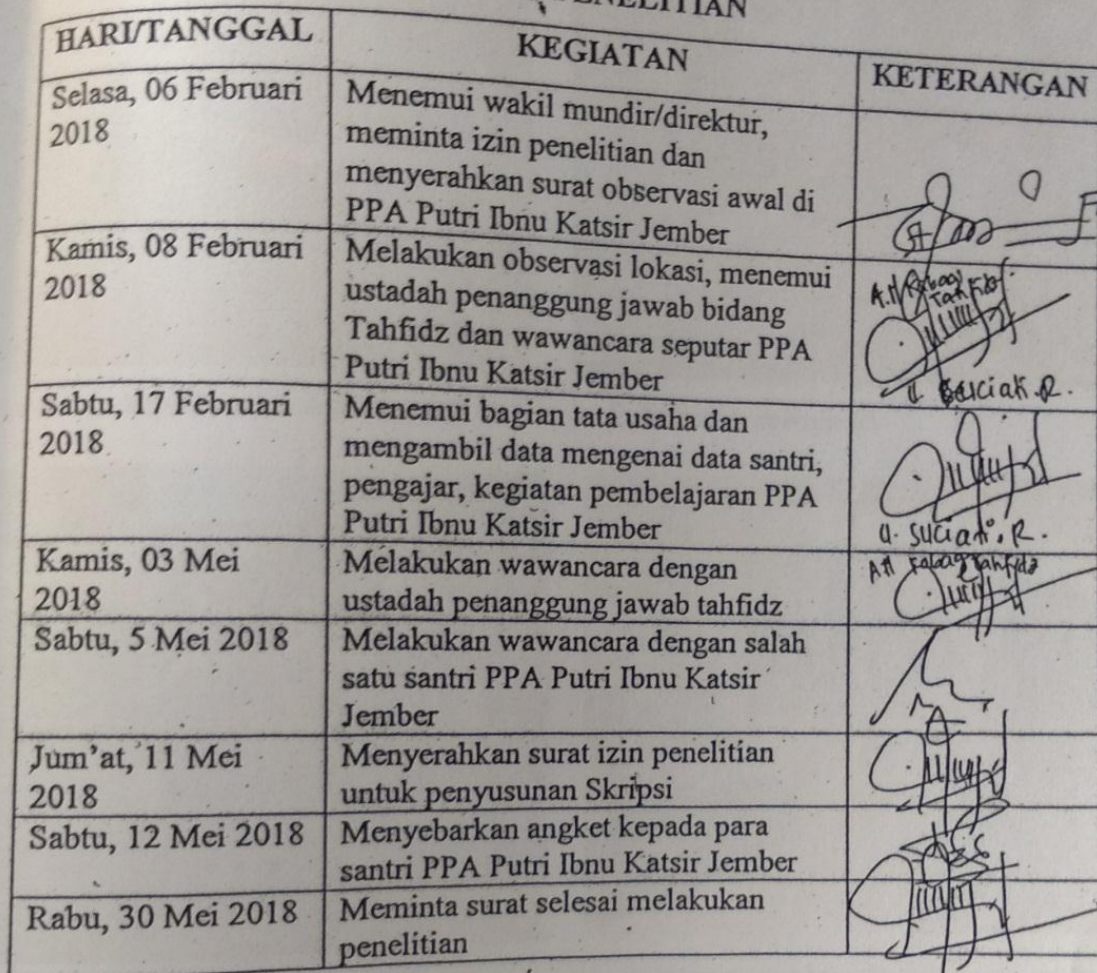 PENELITIAN
HARI/TANGGAL
KEGIATAN
KETERANGAN
Selasa, 06 Februari
2018
Menemui wakil mundir/direktur,
meminta izin penelitian dan
menyerahkan surat observasi awal di
PPA Putri Ibnu Katsir Jember
Kamis, 08 Februari
2018
Melakukan observasi lokasi, menemui
ustadah penanggung jawab bidang
Tahfidz dan wawancara seputar PPA
Putri Ibnu Katsir Jember
Sabtu, 17 Februari
2018
Menemui bagian tata usaha dan
mengambil data mengenai data santri,
pengajar, kegiatan pembelajaran PPA
Putri Ibnu Katsir Jember
U. Suciati. R.
Kamis, 03 Mei
2018
Melakukan wawancara dengan
ustadah penanggung jawab tahfidz
Sabtu, 5 Mei 2018
Melakukan wawancara dengan salah
satu santri PPA Putri Ibnu Katsir
Jember
Jum'at, 11 Mei
2018
Menyerahkan surat izin penelitian
untuk penyusunan Skripsi
Sabtu, 12 Mei 2018
Menyebarkan angket kepada para
santri PPA Putri Ibnu Katsir Jember
Rabu, 30 Mei 2018
Meminta surat selesai melakukan
penelitian